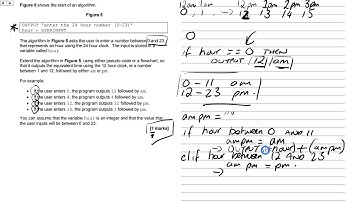 Figure 5 shows the start of an algorithm.
Figure 5
OUTPUT 'enter the 24 hour number (0-23)'
hour ← USERINPUT
The algorithm in Figure 5 asks the user to enter a number between 0 and 23
that represents an hour using the 24 hour clock. The input is stored in a
variable called hour.
Extend the algorithm in Figure 5, using either pseudo-code or a flowchart, so
that it outputs the equivalent time using the 12 hour clock, ie a number
between 1 and 12, followed by either am or pm.
For example:
the user enters
the program outputs 12 followed by am
You can assume that the variable hour is an integer and that the value that
the user inputs will be between 0 and 23.
[7 marks]
12am 1am 12pm 1pm 2pm 3pm
0, 1, 12 13 14 15
0
if hour == 0 THEN
OUTPUT 12 am
0 - 11 am
12 - 23 pm
ampm = ""
if hour between 0 AND 11
ampm = am
→ OUTPUT (hour) + (ampm)
elif hour between 12 AND 23
ampm = pm.
→